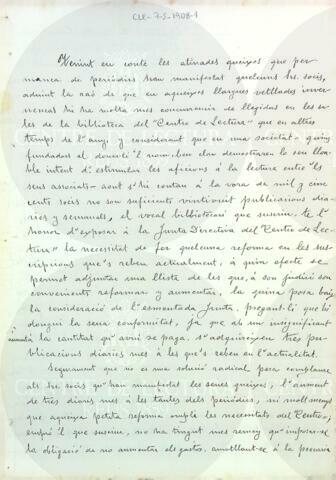 CLE-7-5-1908-1
Tenint en conte les atinades queixes que per
manca de periódichs han manifestat quelcuns Srs. socis,
aduint la raó de que en aqueixes llargues vetllades iver-
nencas hi ha molta mes concurrencia de llegidors en les sa-
les de la biblioteca del "Centro de Lectura" que en altres
temps de l'any, y considerant que en una societat quins
fundadors al donarli 'l nom, ben clar demostraren lo seu lloa-
ble intent d'estimular les aficions á la lectura entre 'ls
seus associats — aont s'hi contan á la vora de mil y cinc
cents socis no son suficients vintivuit publicacions dia-
ries y semanals, el vocal bibliotecari que suscriu, té l'
honor d'exposar á la Junta Directiva del "Centro de Lec-
tura" la necesitat de fer quelcuna reforma en les sus-
cripcions que's reben actualment, á quin efecte se
permet adjuntar una llista de les que, á son judici son
convenients reformar y aumentar, la quina posa baix
la consideració de l'esmentada Junta, pregantli que hi
dongui la seua conformitat, ja que ab un insignificant
aument á la cantitat que avui se paga, s'adquireixen tres pu-
blicacions diaries mes á les que's reben en l'actualitat.
Segurament que no es una solució radical pera complaure
als Srs. socis qu'han manifestat les seues queixes, l'aument
de tres diaris mes á les tantes dels periódics, ni molt menys
que aqueixa petita reforma omple les necesitats del "Centro",
empró 'l que suscriu, no ha tingut mes remey qu'imposar-se
la obligació de no aumentar els gastos, amotllant-se á la precaria